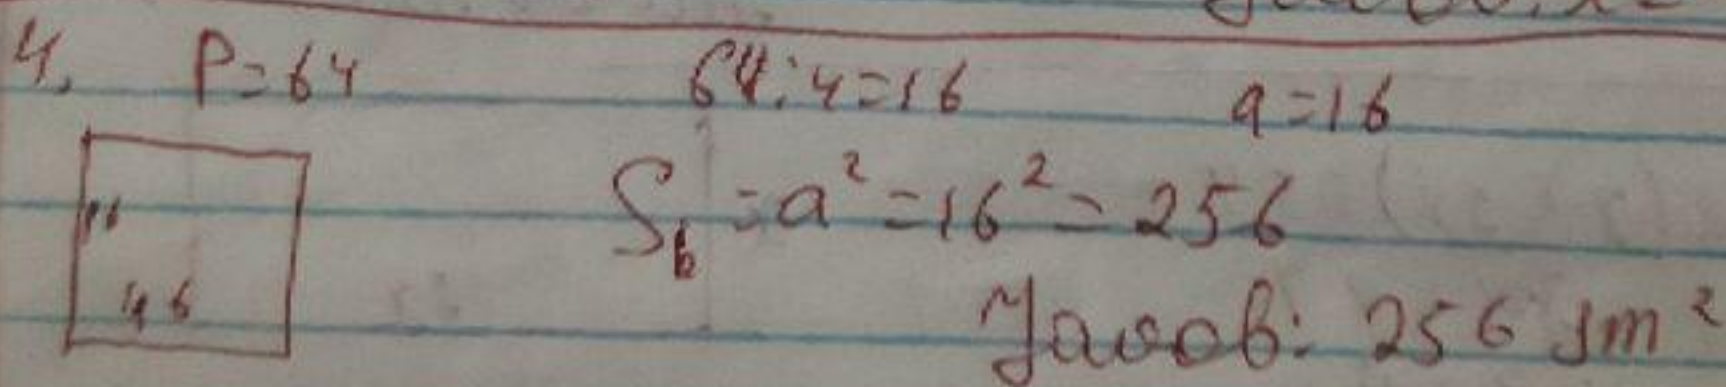 4. P=64 64:4=16 a=16
16 S =a²=16²=256
16
Javob: 256 sm²